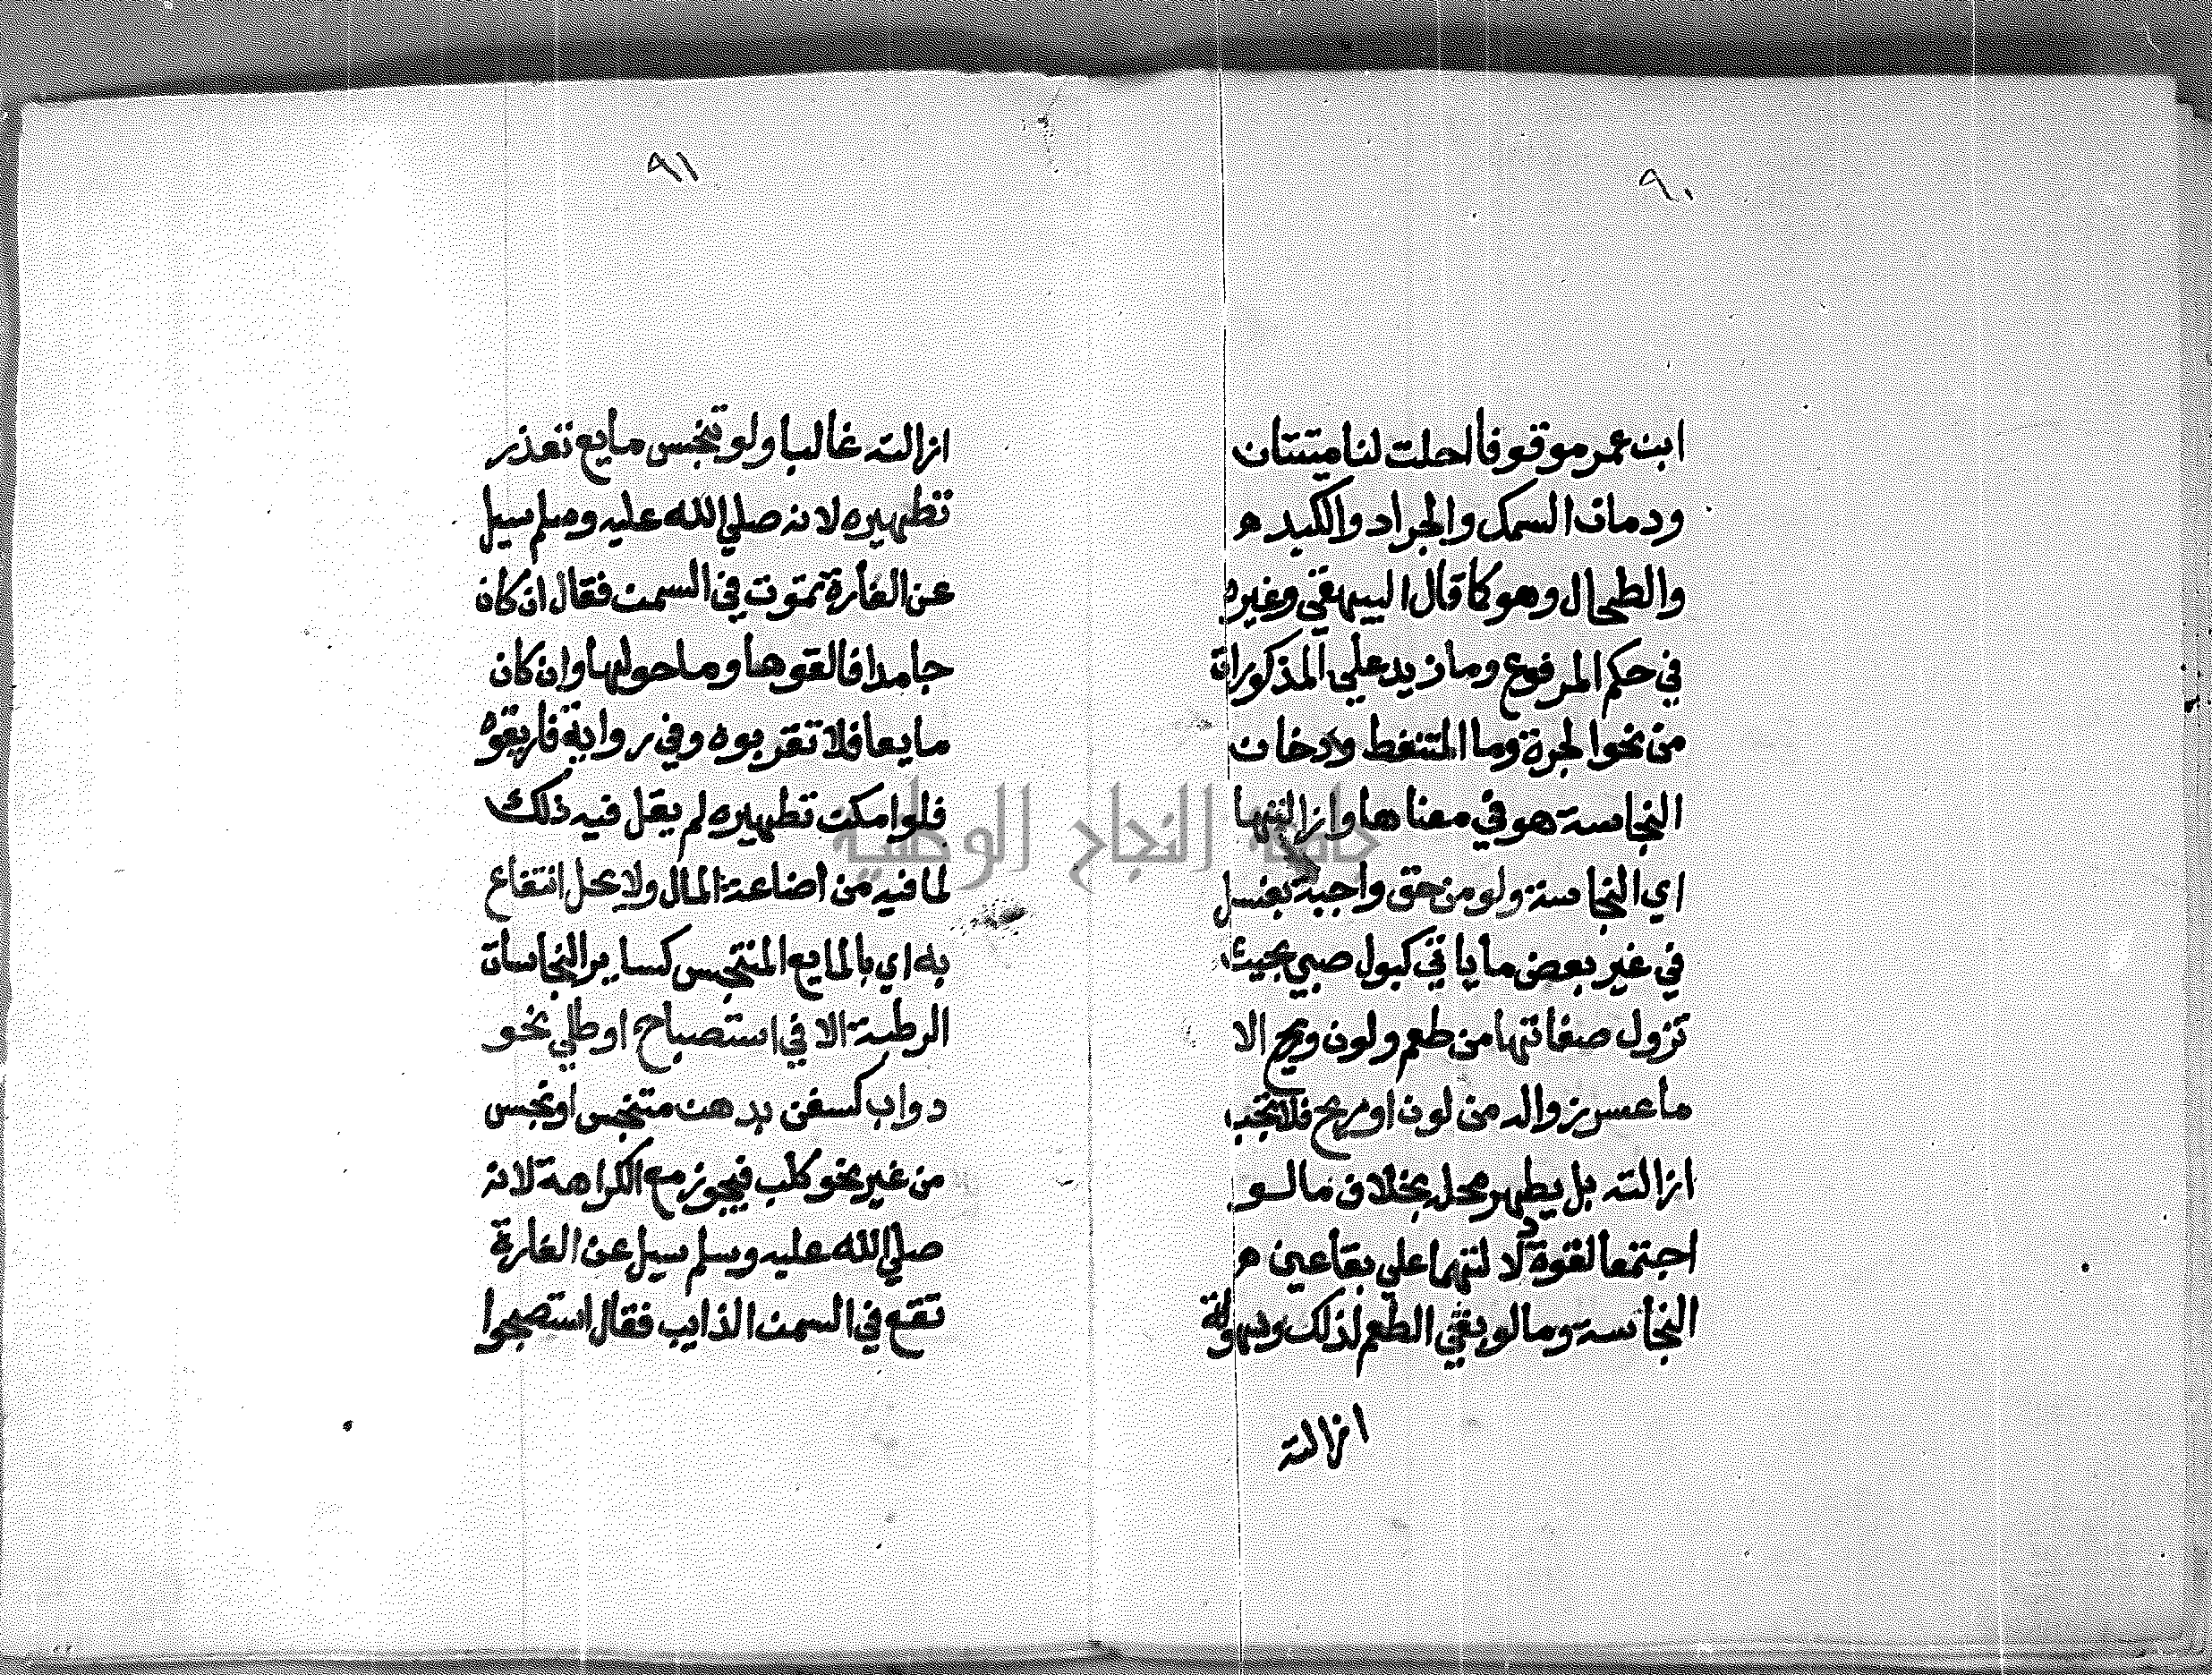 ٩٠
ابن عمر موقوفا احلت لنا ميتتان
ودمان السمك والجراد والكبد ه
والطحال وهو كما قال البيهقي وغيره
في حكم المرفوع وما زيد علي المذكورات
من نحو الجرة وما المتنفط ودخان
النجاسة هو في معناها وازالتها
اي النجاسة ولو من حق واجبة بغسل
في غير بعض ما ياتي كبول صبي بحيث
تزول صفاتها من طعم ولون وريح الا
ما عسر زواله من لون او ريح فلا تجب
ازالته بل يطهر محله بخلاف ما لو
اجتمعا لقوة دلالتهما علي بقا عين ه
النجاسة وما لو بقي الطعم لذلك وسهولة
ازالته
٩١
ازالته غالبا ولو تنجس مايع تعذر
تطهيره لانه صلي الله عليه وسلم سيل
عن الفارة تموت في السمن فقال ان كان
جامدا فالقوها وما حولها وان كان
مايعا فلا تقربوه وفي رواية فاريقوه
فلو امكن تطهيره لم يقل فيه ذلك
لما فيه من اضاعة المال ولا يحل انتفاع
به اي بالمايع المتنجس كساير النجاسات
الرطبة الا في استصباح او طلي نحو
دواب كسفن بدهن متنجس او نجس
من غير نحو كلب فيجوز مع الكراهة لانه
صلي الله عليه وسلم سيل عن الفارة
تقع في السمن الذايب فقال استصبحوا
جامعة النجاح الوطنية